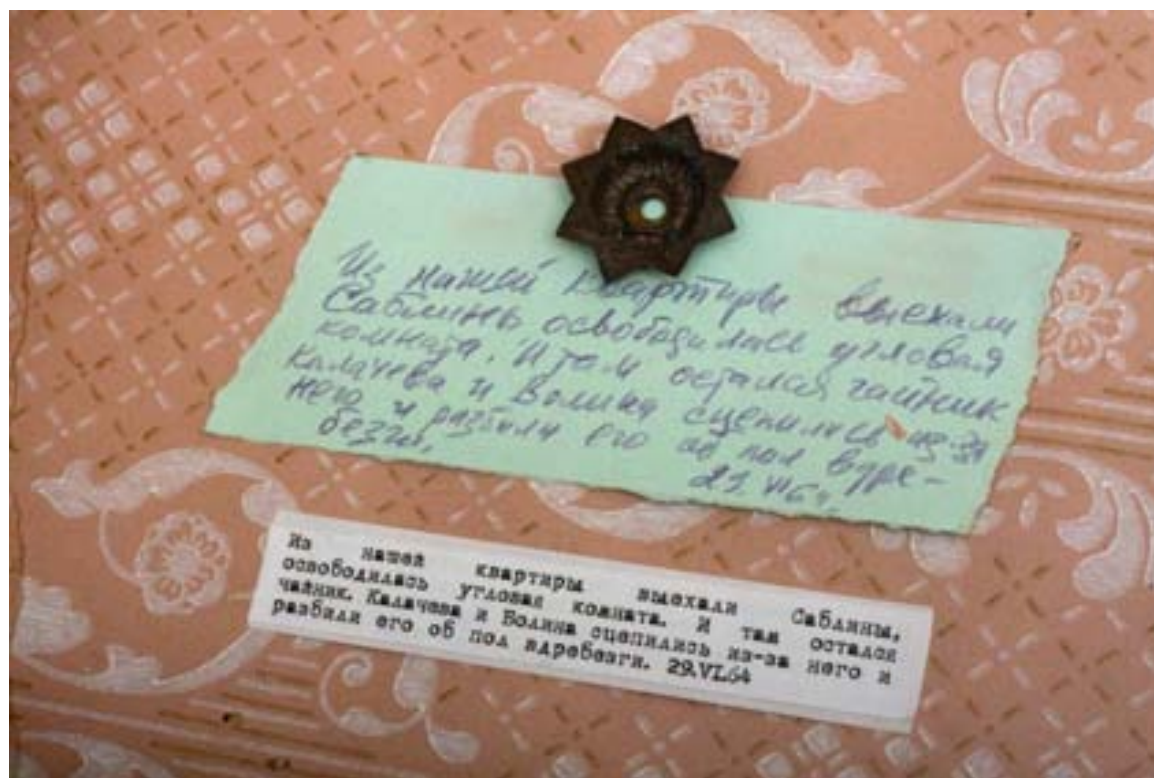 Из нашей квартиры выехали
Саблины освободилась угловая
комната. И там остался чайник
Калачева и Волина сцепились из-за
него и разбили его об пол вдре-
безги.
Из нашей квартиры выехали Саблины,
освободилась угловая комната. И там остался
чайник. Калачева и Волина сцепились из-за него и
разбили его об пол вдребезги. 29.VI.64